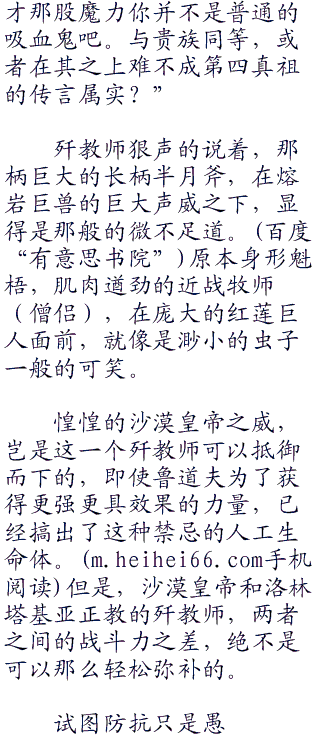 才那股魔力你并不是普通的
吸血鬼吧。与贵族同等，或
者在其之上难不成第四真祖
的传言属实？”
歼教师狠声的说着，那
柄巨大的长柄半月斧，在熔
岩巨兽的巨大声威之下，显
得是那般的微不足道。(百度
“有意思书院”)原本身形魁
梧，肌肉遒劲的近战牧师
（僧侣），在庞大的红莲巨
人面前，就像是渺小的虫子
一般的可笑。
惶惶的沙漠皇帝之威，
岂是这一个歼教师可以抵御
而下的，即使鲁道夫为了获
得更强更具效果的力量，已
经搞出了这种禁忌的人工生
命体。(m.heihei66.com手机
阅读)但是，沙漠皇帝和洛林
塔基亚正教的歼教师，两者
之间的战斗力之差，绝不是
可以那么轻松弥补的。
试图防抗只是愚